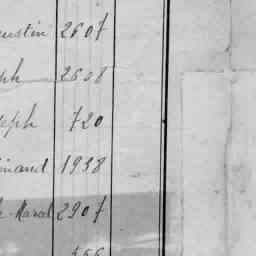 ustin 2607
ph 2608
seph 720
inand 1938
e-Maral 2907